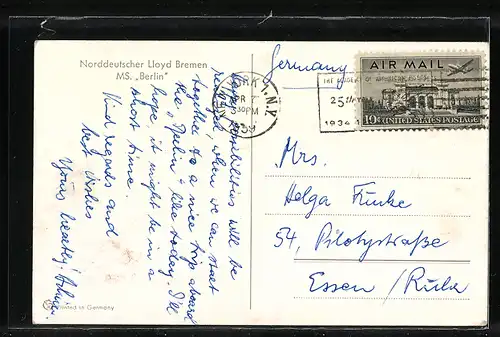 Norddeutscher Lloyd Bremen
MS. „Berlin"
possibilities will be
when we can start
together to a nice trip aboard
the „Berlin" like today. I'll
hope, it might be in a
short time.
Kind regards and
best wishes
Yours
Printed in Germany
Germany
N.Y.
APR 7
30PM
1959
25th
1934
AIR MAIL
10¢ UNITED STATES POSTAGE
Mrs.
Helga Funke
54, Pilotystraße
Essen / Ruhr